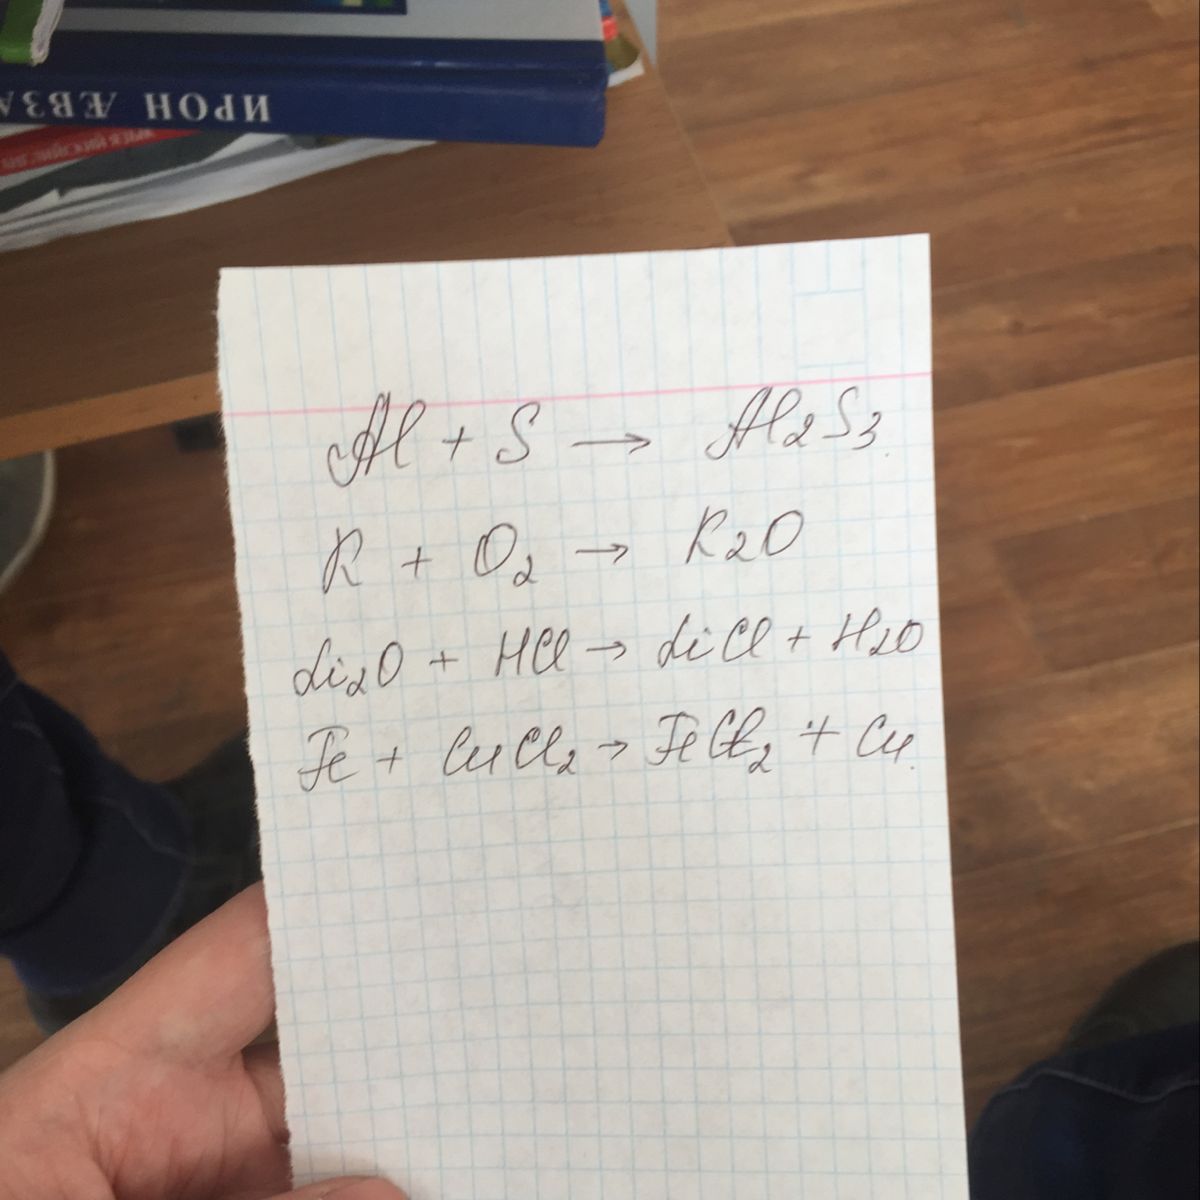 ИРОН ÆВЗА
Al + S → Al2S3
K + O2 → K2O
Li2O + HCl → LiCl + H2O
Fe + CuCl2 → FeCl2 + Cu